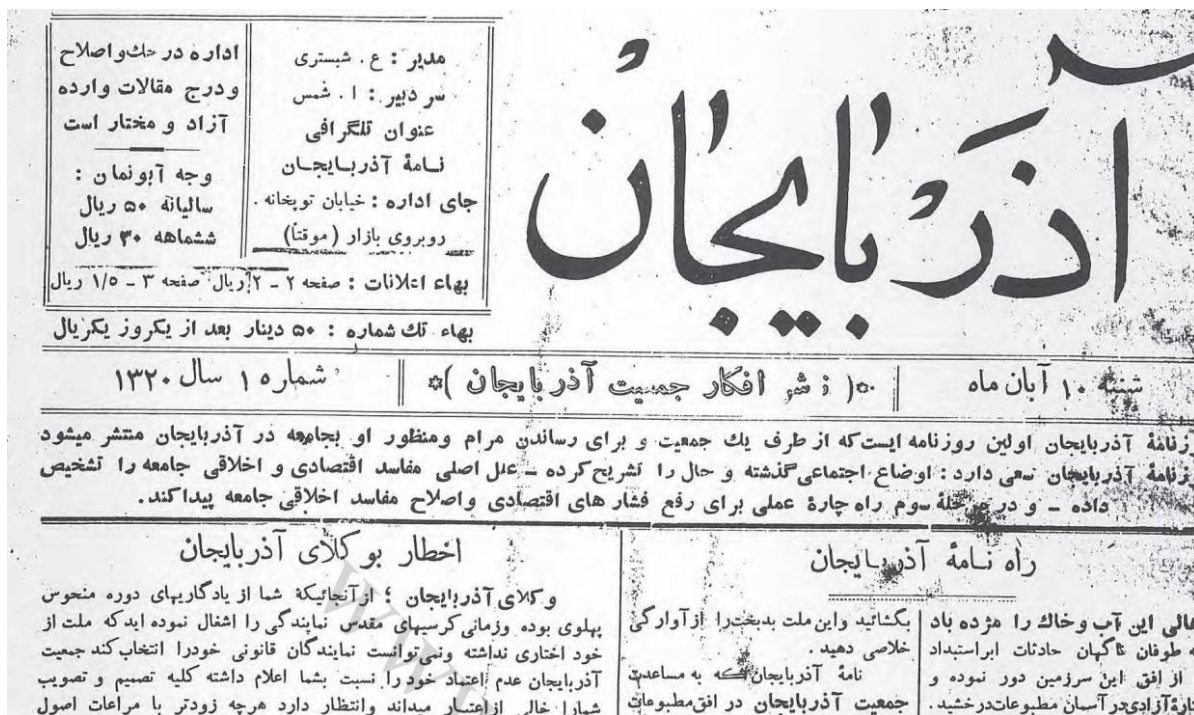 آذربایجان
مدیر : ع . شبستری
سر دبیر : ا . شمس
عنوان تلگرافی
نامهٔ آذربایجان
جای اداره : خیابان توپخانه .
روبروی بازار (موقتاً)
اداره در حك و اصلاح
و درج مقالات وارده
آزاد و مختار است
وجه آبونمان :
سالیانه ۵۰ ریال
ششماهه ۳۰ ریال
بهاء اعلانات : صفحه ۲ - ۲ ریال صفحه ۳ - ۱/۵ ریال
بهاء تك شماره : ۵۰ دینار بعد از یکروز یکریال
شنبه ۱۰ آبان ماه
( نشر افکار جمعیت آذربایجان )
شماره ۱ سال ۱۳۲۰
زنامهٔ آذربایجان اولین روزنامه ایست که از طرف یك جمعیت و برای رساندن مرام ومنظور او بجامعه در آذربایجان منتشر میشود
زنامهٔ آذربایجان سعی دارد : اوضاع اجتماعی گذشته و حال را تشریح کرده - علل اصلی مفاسد اقتصادی و اخلاقی جامعه را تشخیص
داده - و در سوم راه چارهٔ عملی برای رفع فشار های اقتصادی واصلاح مفاسد اخلاقی جامعه پیدا کند .
راه نامهٔ آذربایجان
این آب و خاك را مژده باد
طوفان ناگهان حادثات ابر استبداد
از افق این سرزمین دور نموده و
آزادی در آسمان مطبوعات درخشید .
بگشائید و این ملت بدبخت را از آوارگی
خلاصی دهید .
نامهٔ آذربایجان که به مساعدت
جمعیت آذربایجان در افق مطبوعات
اخطار بو کلای آذربایجان
وکلای آذربایجان ؛ از آنجائیکهٔ شما از یادگاریهای دوره منحوس
پهلوی بوده وزمانی کرسیهای مقدس نمایندگی را اشغال نموده اید که ملت از
خود اختاری نداشته ونمی توانست نمایندگان قانونی خودرا انتخاب کند جمعیت
آذربایجان عدم اعتماد خود را نسبت بشما اعلام داشته کلیه تصمیم و تصویب
شمارا خالی از اعتبار میداند وانتظار دارد هرچه زودتر با مراعات اصول
www